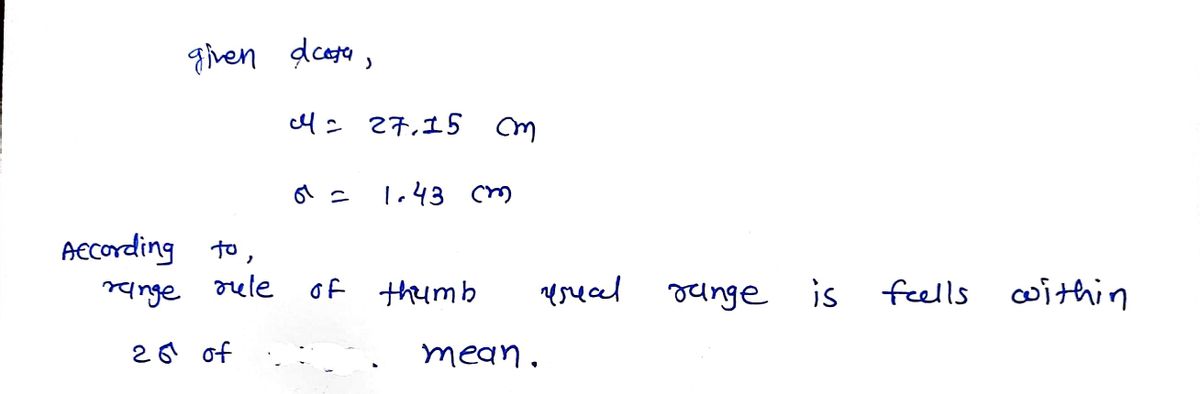 given data,
μ = 27.15 cm
σ = 1.43 cm
According to,
range rule of thumb usual range is falls within
2σ of mean.